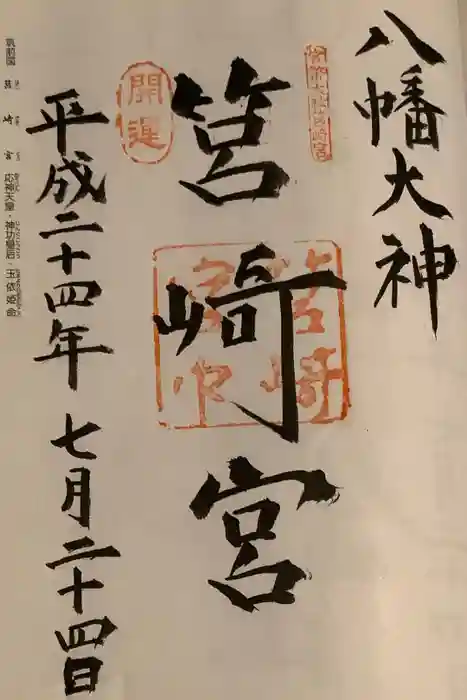 八幡大神
筥崎宮
開運
平成二十四年 七月二十四日
筑前国 筥崎宮 応神天皇・神功皇后・玉依姫命
筥崎
宮印